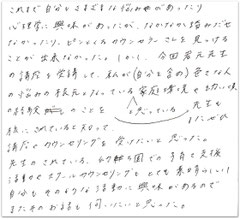 これまで自分もさまざまな悩みがあったり
心理学に興味があったが、なかなか踏みだせ
なかったり、ピンとくるカウンセラーさんを見つける
ことが出来なかった。しかし、今回君元先生
の講座を受講して、私が(自分を含め)色々な人
の悩みの根元となっている家庭環境
のことを と思っている 先生も
話にされていると知って、
講座とカウンセリングを受けたいと思った。
先生のされている、 国での 支援
活動やスクールカウンセリングもとても素晴らしい!
自分もそのような活動に興味があるので
またそのお話も伺いたいと思った。